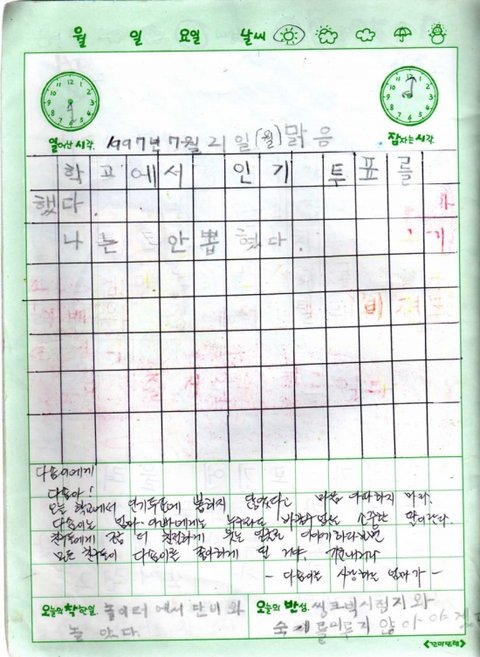 월 일 요일 날씨
일어난 시각 1997년 7월 21일 (월) 맑음 잠자는 시각
학교에서 인기 투표를
했다.
나는 안 뽑혔다.
다솜이에게
다솜아!
오늘 학교에서 인기투표에 뽑히지 않았다고 마음 아파하지 마라.
다솜이는 엄마 아빠에게는 누구와도 바꿀수없는 소중한 딸이란다.
친구들에게 좀 더 친절하게 웃는 얼굴로 이야기하다보면
모든 친구들이 다솜이를 좋아하게 될 거야.
- 다솜이를 사랑하는 엄마가 -
오늘의 착한일. 놀이터에서 단비와 오늘의 반성. 씽크빅시험지와
놀았다. 숙제를 미루지 않아야
<꼬마또래>